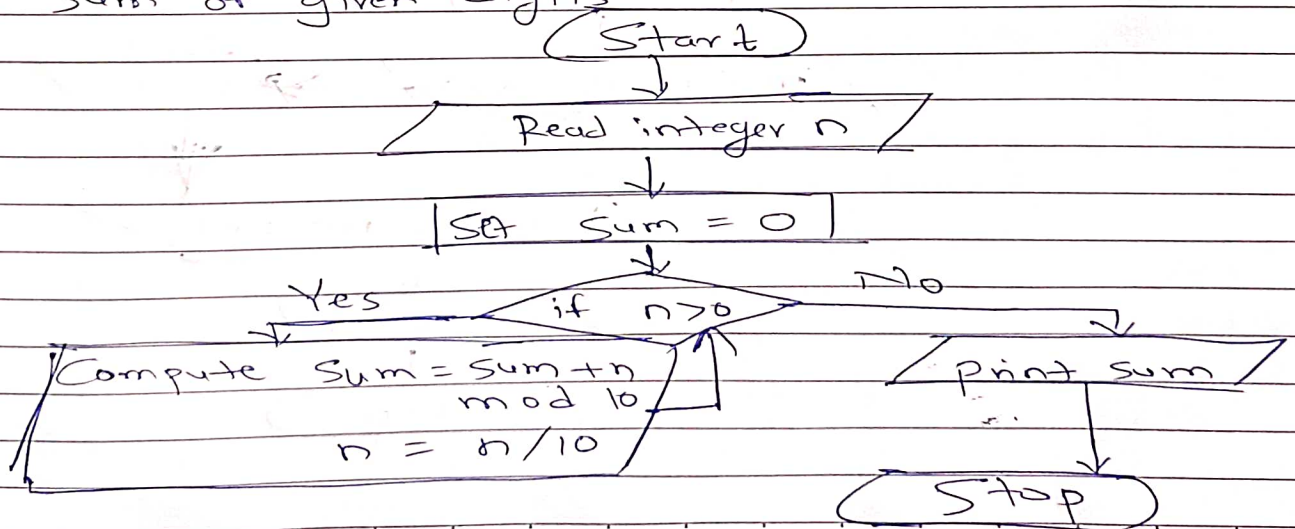 sum of given digits
Start
Read integer n
Set sum = 0
if n>0
Yes
No
Compute sum = sum + n
mod 10
n = n/10
print sum
Stop